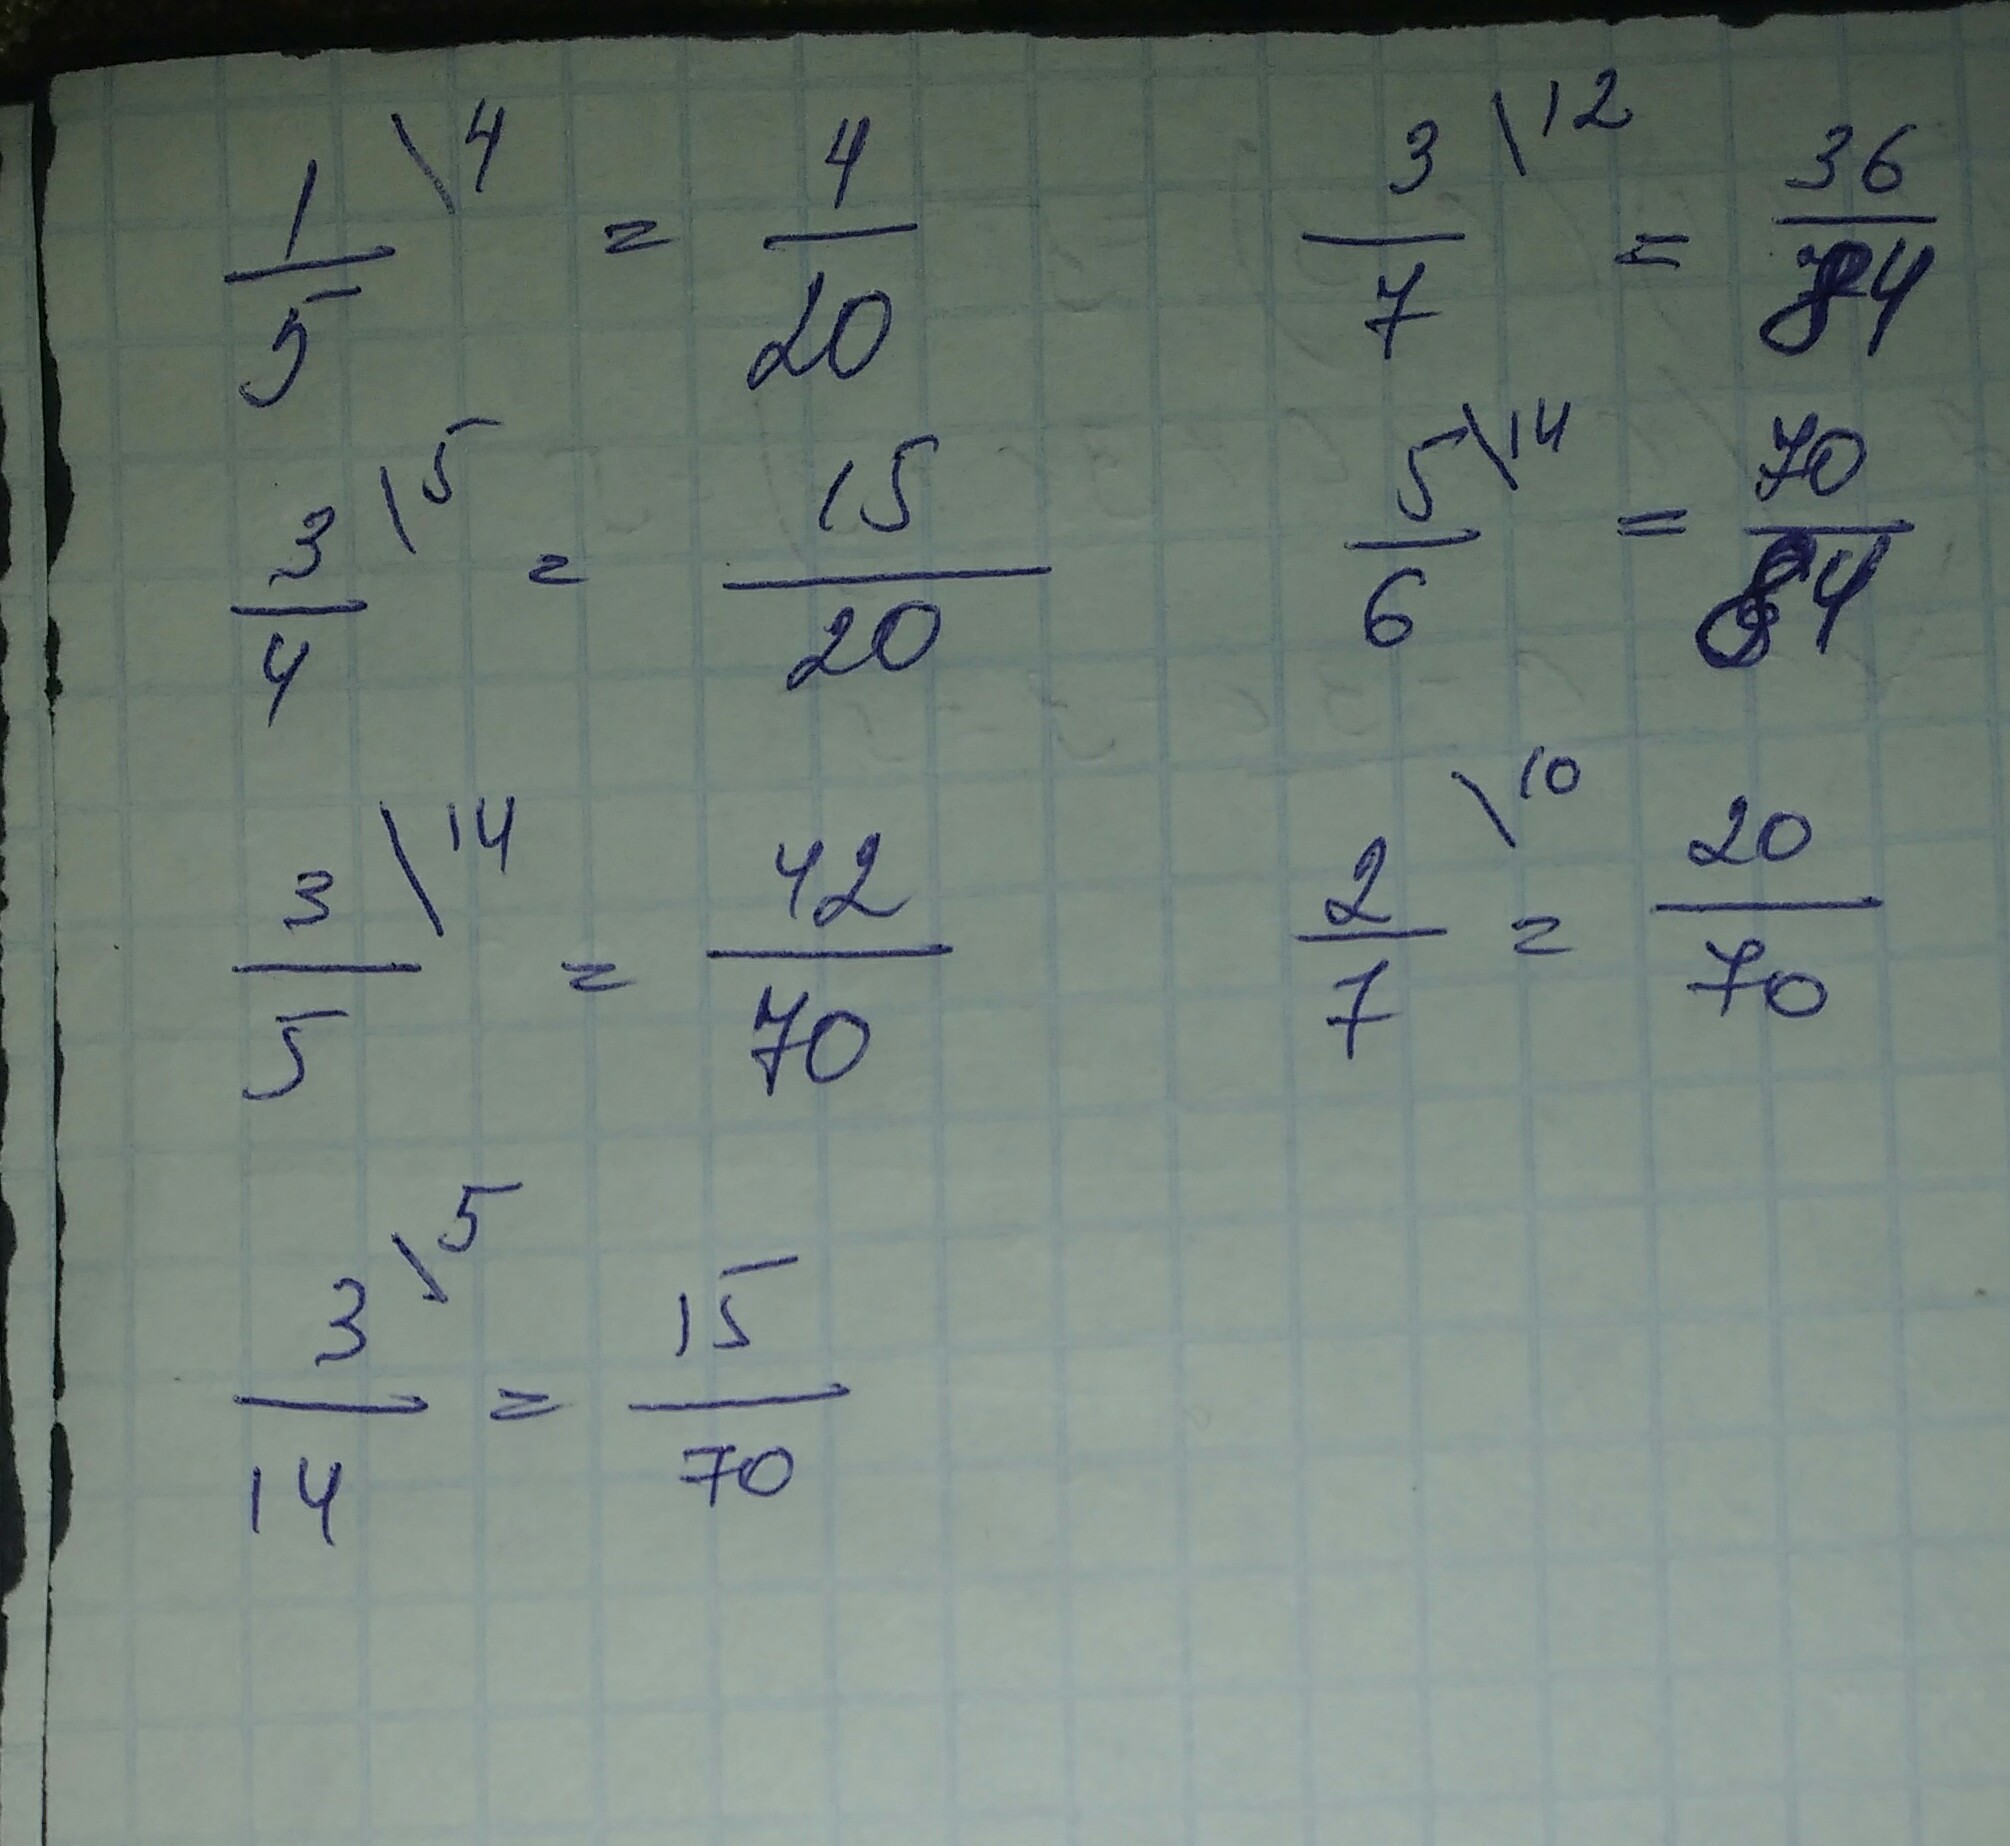 1/5 \4 = 4/20
3/4 \5 = 15/20
3/5 \14 = 42/70
3/14 \5 = 15/70
3/7 \12 = 36/84
5/6 \14 = 70/84
2/7 \10 = 20/70